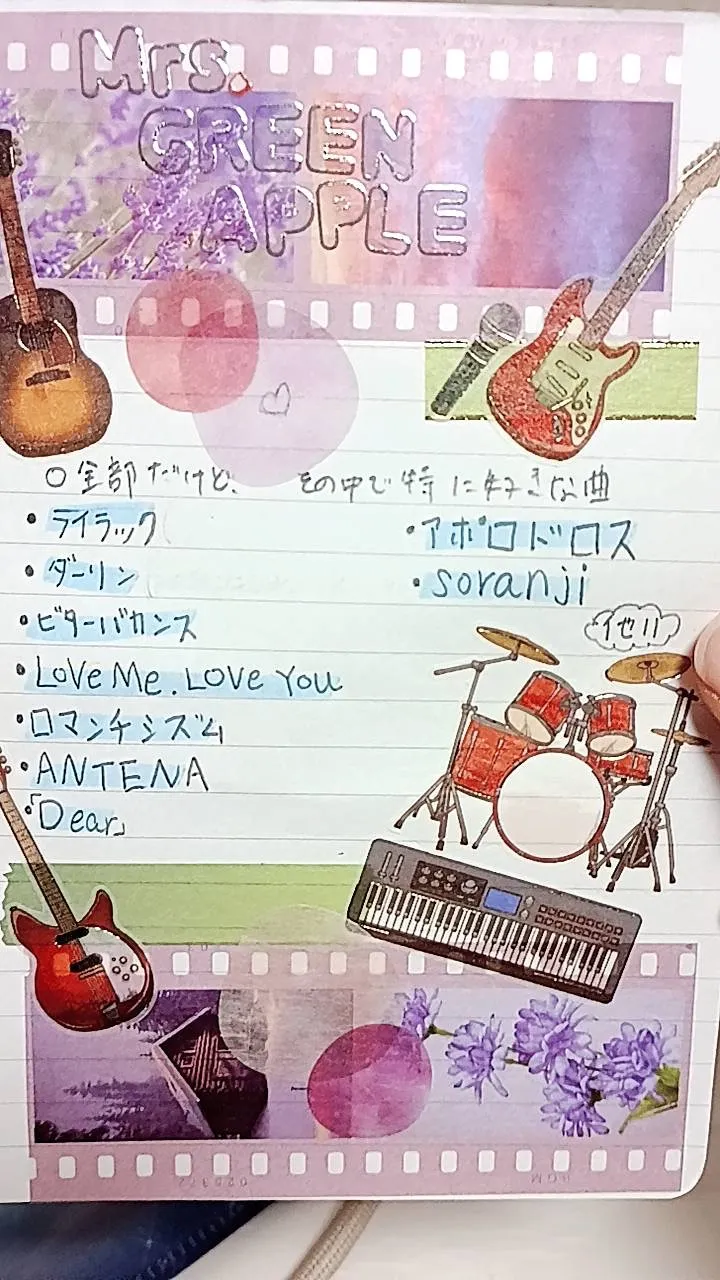 Mrs.
GREEN
APPLE
○全部だけど、その中で特に好きな曲
・ライラック
・ダーリン
・ビターバカンス
・LoVe Me, LOVe You
・ロマンチシズム
・ANTENA
・「Dear」
・アポロドロス
・soranji
他!!